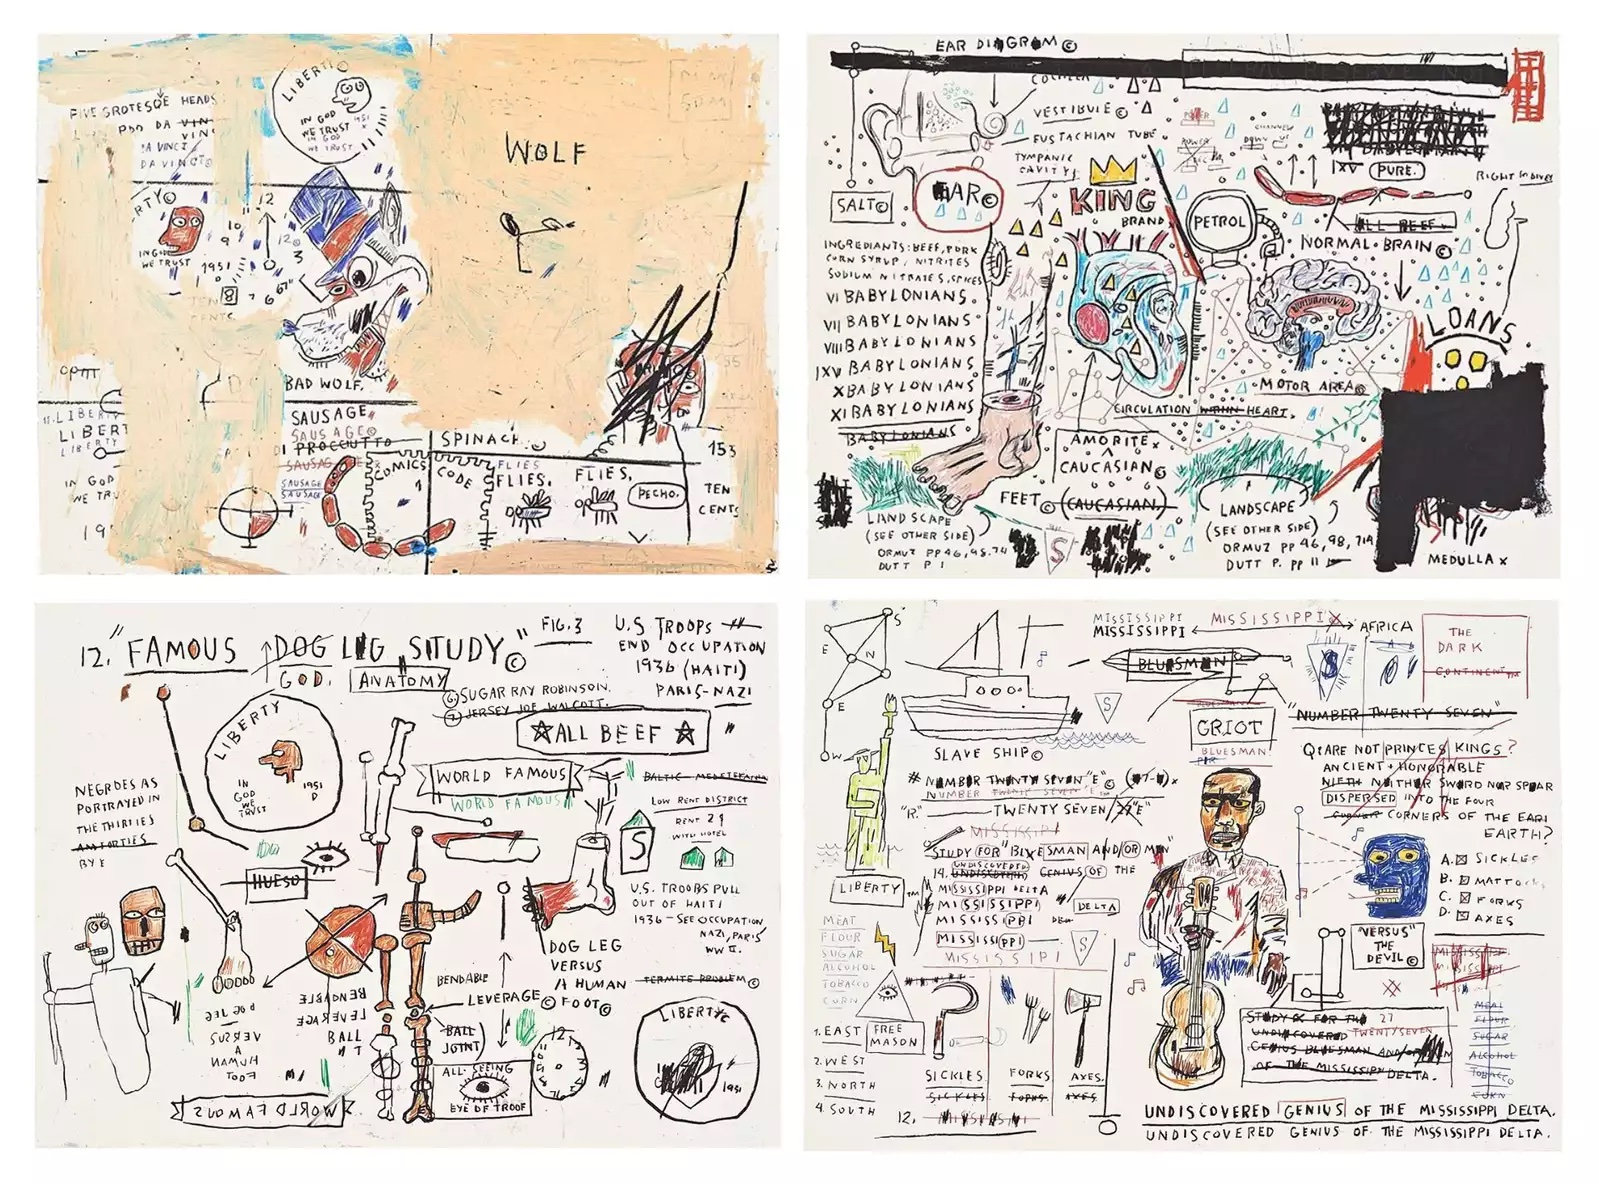 FIVE GROTESQE HEADS
DA VINCI
DA VINCI©
LIBERTY
IN GOD
WE TRUST
1951
IN GOD
WE TRUST
WOLF
RTY©
IN GOD
WE TRUST
12
10
9
3
1951
8
7
6
BAD WOLF.
LIBERTY
LIBERT
LIBERTY
IN GOD
WE TRU
19
SAUSAGE
SAUSAGE©
PROCCUTTO
SAUSAGE
SAUSAGE
SAUSAGE
COMICS
CODE
1
SPINACH
FLIES
FLIES.
FLIES.
PECHO.
153
TEN
CENTS
EAR DIAGRAM©
COCHLEA
VESTIBULE©
EUSTACHIAN TUBE
TYMPANIC
CAVITY
SALT©
EAR©
KING
BRAND
PETROL
POWER
IXV PURE.
ALL BEEF
NORMAL BRAIN©
INGREDIANTS: BEEF, PORK
CORN SYRUP, NITRITES
SODIUM NITRATES, SPICES
VI BABYLONIANS.
VII BABYLONIANS
VIII BABYLONIANS
IXV BABYLONIANS
X BABYLONIANS
XI BABYLONIANS
BABYLONIANS
LOANS
MOTOR AREA©
CIRCULATION WITHIN HEART.
AMORITE x
CAUCASIAN©
FEET© (CAUCASIAN.)
LANDSCAPE
(SEE OTHER SIDE)
ORMUZ PP 46, 98, 714
DUTT P 1
S
LANDSCAPE
(SEE OTHER SIDE)
ORMUZ PP 46, 98, 714
DUTT P. PP 11
MEDULLA x
12. "FAMOUS DOG LEG STUDY"©
FIG. 3
GOD.
ANATOMY
U.S TROOPS
END OCCUPATION
1936 (HAITI)
PARIS-NAZI
⑥ SUGAR RAY ROBINSON.
⑦ JERSEY JOE WALCOTT.
☆ALL BEEF☆
LIBERTY
IN
GOD
WE
TRUST
1951
D
WORLD FAMOUS
WORLD FAMOUS
LOW RENT DISTRICT
RENT 2$
WITH HOTEL
S
NEGROES AS
PORTRAYED IN
THE THIRTIES
AND FORTIES
BY E
HUESO
U.S. TROOPS PULL
OUT OF HAITI
1936 - SEE OCCUPATION
NAZI, PARIS
WW II.
DOG LEG
VERSUS
A HUMAN
FOOT©
BENDABLE
LEVERAGE©
BALL
JOINT
TERMITE PROBLEM©
DOG LEG
VERSUS
A
HUMAN
FOOT
BENDABLE
LEVERAGE
BALL
ALL-SEEING
EYE OF TROOF
12
LIBERTY©
1951
WORLD FAMOUS
S
E
N
E
W
MISSISSIPPI
MISSISSIPPI
MISSISSIPPI
AFRICA
THE
DARK
CONTINENT™
BLUESMAN
S
S
SLAVE SHIP©
GRIOT
BLUESMAN
"NUMBER TWENTY SEVEN"
# NUMBER TWENTY SEVEN "E"©
NUMBER TWENTY SEVEN "E"
"R." TWENTY SEVEN
MISSISSIPPI
STUDY FOR "BLUESMAN AND/OR MEN"
UNDISCOVERED
14. UNDISCOVERED GENIUS OF THE
MISSISSIPPI DELTA
MISSISSIPPI
MISSISSIPPI
DELTA
MISSISSIPPI
S
MISSISSIPPI
Q: ARE NOT PRINCES KINGS?
ANCIENT + HONORABLE
NIETH NEITHER SWORD NOR SPEAR
DISPERSED INTO THE FOUR
CORNER CORNERS OF THE EARI
EARTH?
A. ☒ SICKLES
B. ☒ MATTOCKS
C. ☒ FORKS
D. ☒ AXES
LIBERTY™
MEAT
FLOUR
SUGAR
ALCOHOL
TOBACCO
CORN
1. EAST
FREE
MASON
2. WEST
3. NORTH
4. SOUTH
SICKLES
SICKLES
FORKS
FORKS
AXES.
AXES
12. MISSISSIPPI
"VERSUS"
THE
DEVIL©
MISSISSIPPI
MISSISSIPPI
MEAT
FLOUR
SUGAR
ALCOHOL
TOBACCO
CORN
STUDY FOR THE 27
UNDISCOVERED TWENTY/SEVEN
GENIUS BLUESMAN AND/OR MEN
OF THE MISSISSIPPI DELTA.
UNDISCOVERED GENIUS OF THE MISSISSIPPI DELTA.
UNDISCOVERED GENIUS OF THE MISSISSIPPI DELTA.